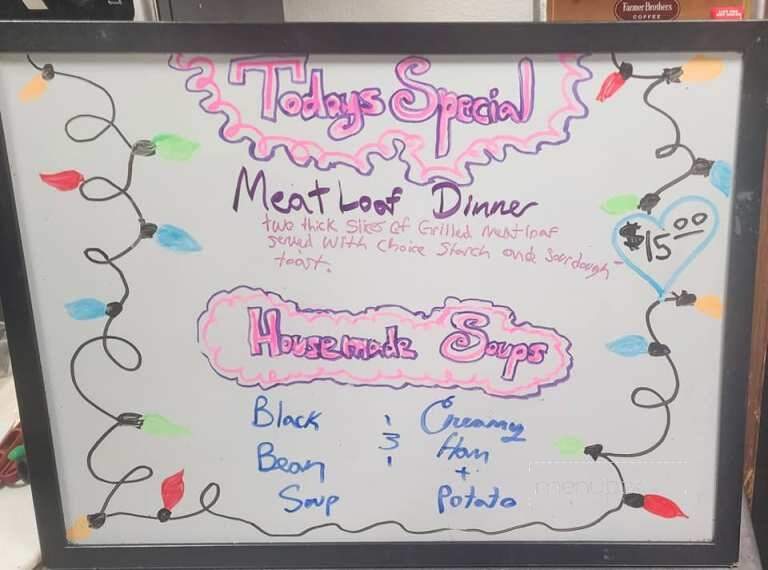 Farmer Brothers
COFFEE
Todays Special
Meat Loaf Dinner
two thick slices of Grilled meatloaf
served with choice starch and sourdough
toast.
$15.00
Housemade Soups
Black
Bean
Soup
&
Creamy
Ham
+
Potato
menupix